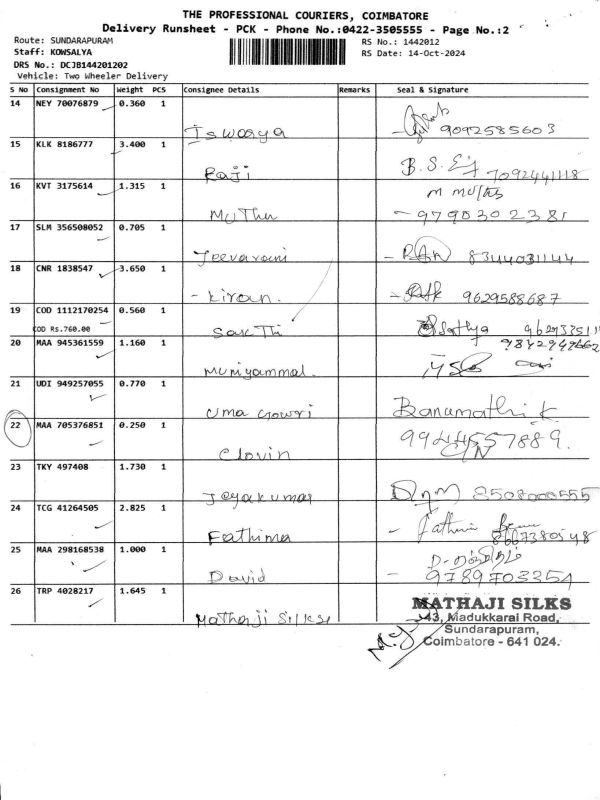 THE PROFESSIONAL COURIERS, COIMBATORE
Delivery Runsheet - PCK - Phone No.:0422-3505555 - Page No.:2
Route: SUNDARAPURAM
RS No.: 1442012
Staff: KOWSALYA
RS Date: 14-Oct-2024
DRS No.: DCJB144201202
Vehicle: Two Wheeler Delivery
S No Consignment No Weight PCS Consignee Details Remarks Seal & Signature
14 NEY 70076879 0.360 1 Iswarya 9092585603
15 KLK 8186777 3.400 1 Raji 7092441118
16 KVT 3175614 1.315 1 Muthu M Muthu
- 9790302381
17 SLM 356508052 0.705 1 Jeevarani 8344031144
18 CNR 1838547 3.650 1 - Kiran. 9629588687
19 COD 1112170254 0.560 1 Sakthi Sathya
COD Rs.760.00
20 MAA 945361559 1.160 1 Muniyammal.
21 UDI 949257055 0.770 1 Uma Gowri Banumathi K
22 MAA 705376851 0.250 1 Clovin 9944557889.
23 TKY 497408 1.730 1 Jeyakumar 8508000555
24 TCG 41264505 2.825 1 Fathima - Fathima
8667380548
25 MAA 298168538 1.000 1 David
- 9789703351
26 TRP 4028217 1.645 1 Mathaji Silks
MATHAJI SILKS
43, Madukkarai Road,
Sundarapuram,
Coimbatore - 641 024.